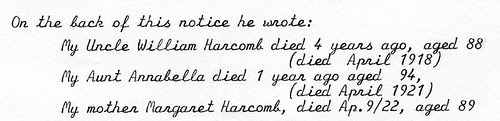 On the back of this notice he wrote:
My Uncle William Harcomb died 4 years ago, aged 88
(died April 1918)
My Aunt Annabella died 1 year ago aged 94,
(died April 1921)
My mother Margaret Harcomb, died Ap.9/22, aged 89